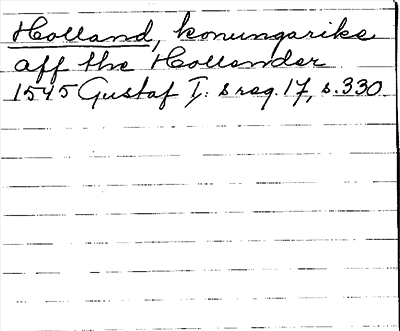 Holland, konungarike
aff the Hollender
1545 Gustaf I: s reg. 17, s. 330